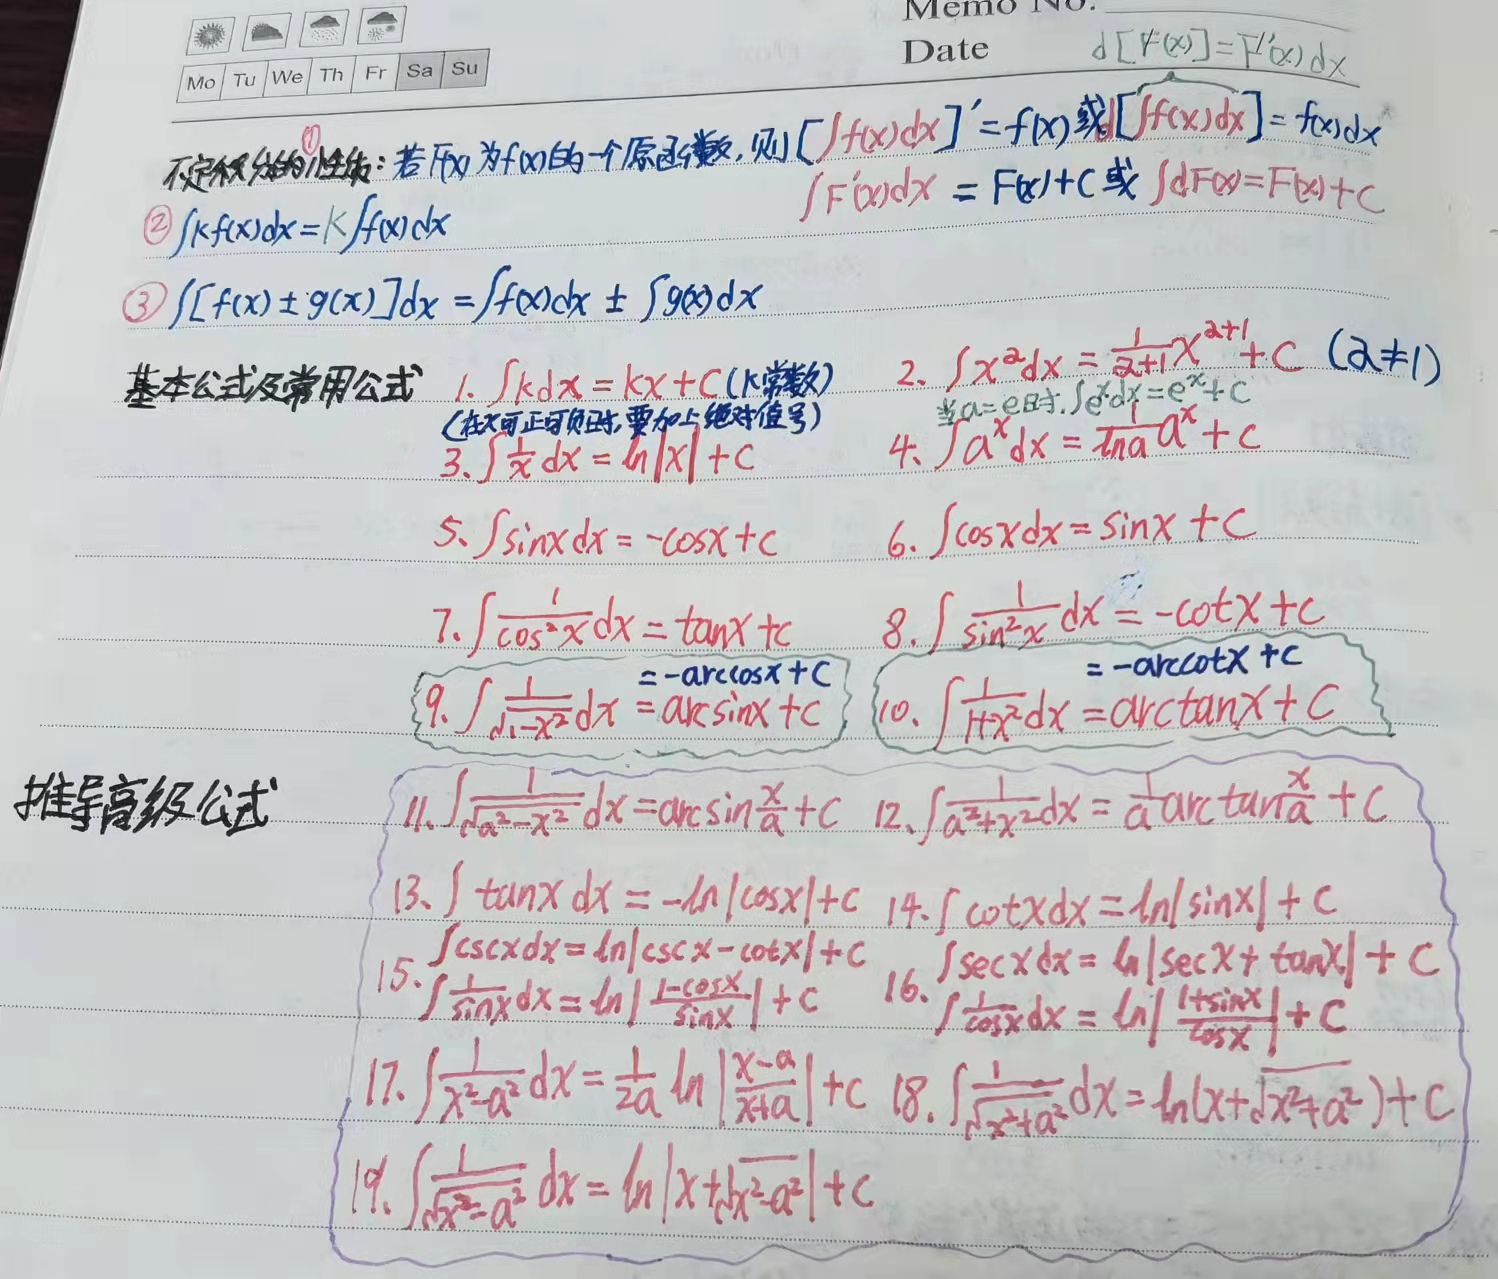 Memo No.
Date
Mo Tu We Th Fr Sa Su
d[F(x)]=F'(x)dx
不定积分的性质:①若F(x)为f(x)的一个原函数,则[∫f(x)dx]'=f(x)或d[∫f(x)dx]=f(x)dx
∫F'(x)dx = F(x)+C或 ∫dF(x)=F(x)+C
②∫kf(x)dx=k∫f(x)dx
③∫[f(x)±g(x)]dx=∫f(x)dx ± ∫g(x)dx
基本公式及常用公式 1. ∫kdx=kx+C(k常数) 2、∫x^a dx = 1/(a+1) x^(a+1)+C (a≠1)
(在x可正可负时,要加上绝对值号) 当a=e时.∫e^x dx=e^x+C
3、∫1/x dx=ln|x|+C 4、∫a^x dx = 1/lna a^x+C
5、∫sinxdx=-cosx+C 6、∫cosxdx=sinx+C
7、∫1/cos²x dx=tanx+C 8、∫1/sin²x dx=-cotx+C
=-arccosx+C =-arccotx+C
9、∫1/√(1-x²) dx=arcsinx+C 10、∫1/(1+x²) dx=arctanx+C
推导高级公式 11、∫1/√(a²-x²) dx=arcsin x/a+C 12、∫1/(a²+x²) dx= 1/a arctan x/a +C
13、∫tanxdx=-ln|cosx|+C 14、∫cotxdx=ln|sinx|+C
15. ∫cscxdx=ln|cscx-cotx|+C 16. ∫secxdx=ln|secx+tanx|+C
∫1/sinx dx=ln|(1-cosx)/sinx|+C ∫1/cosx dx=ln|(1+sinx)/cosx|+C
17、∫1/(x²-a²) dx= 1/2a ln|(x-a)/(x+a)|+C 18、∫1/√(x²+a²) dx=ln(x+√(x²+a²))+C
19、∫1/√(x²-a²) dx=ln|x+√(x²-a²)|+C